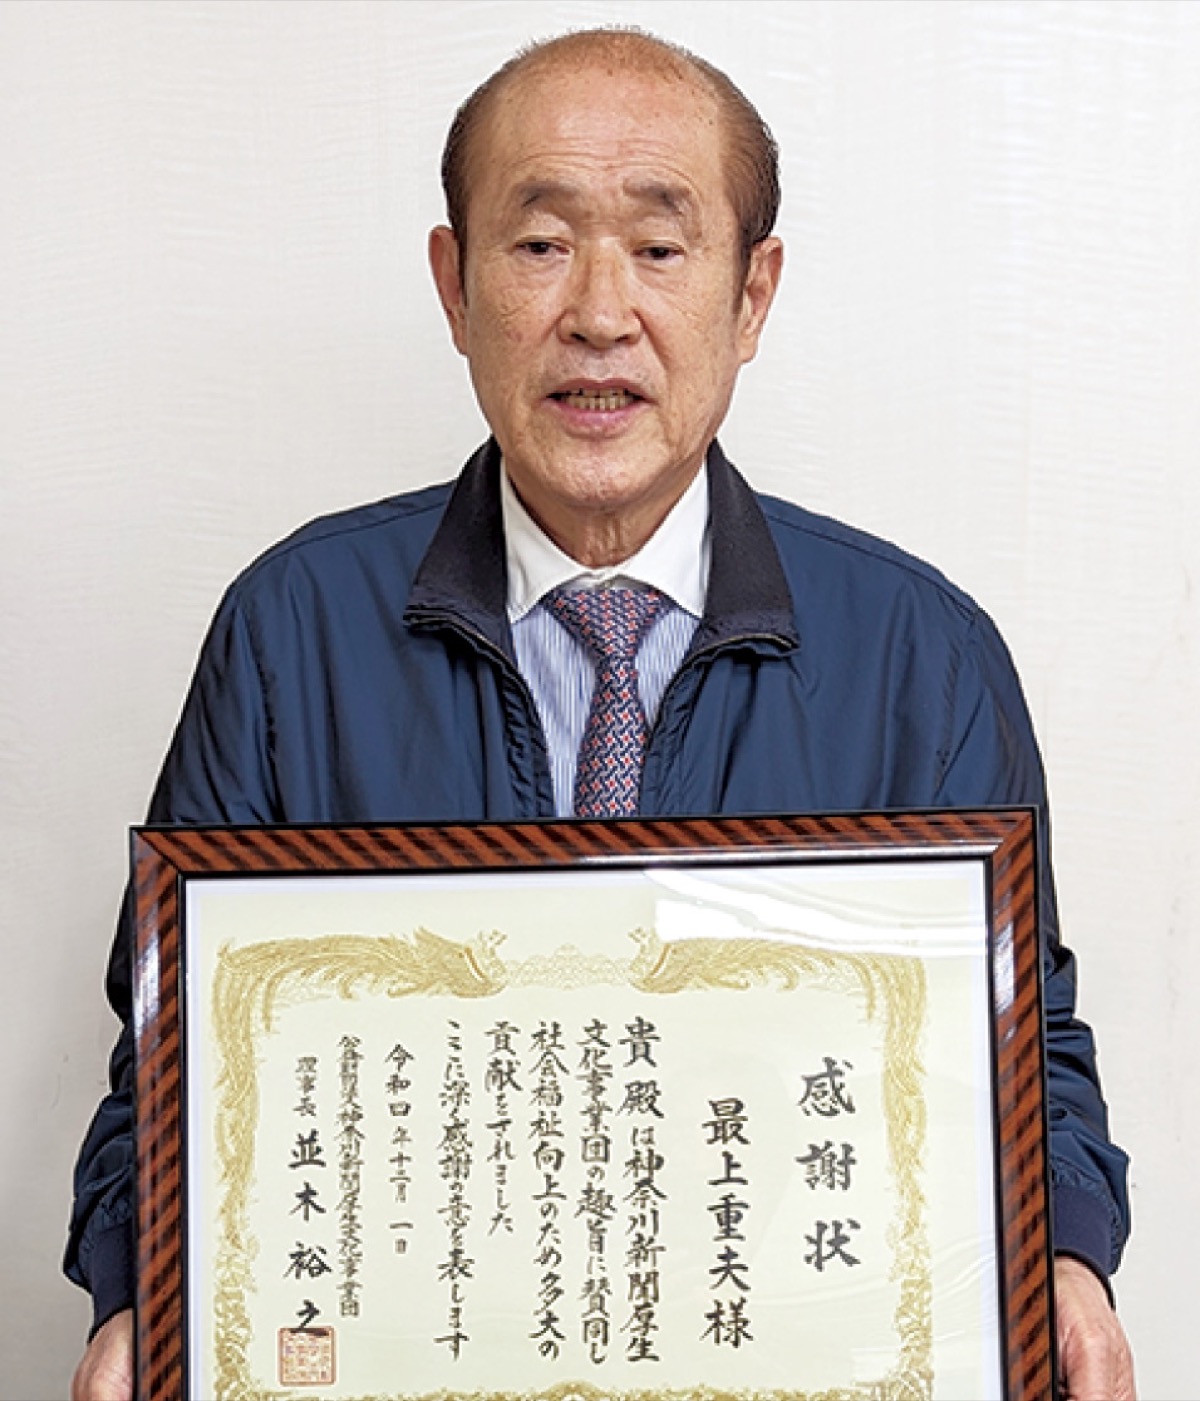 感謝状
最上重夫様
貴殿は神奈川新聞厚生
文化事業団の趣旨に賛同し
社会福祉向上のため多大の
貢献をされました
ここに深く感謝の意を表します
令和四年十二月一日
公益財団法人神奈川新聞厚生文化事業団
理事長 並木裕之